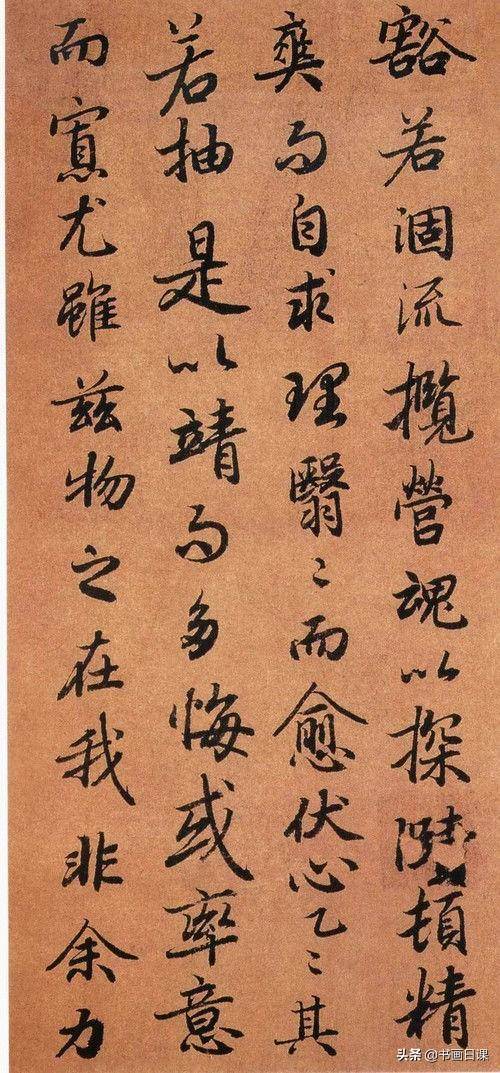 豁若涸流攬營魂以探賾頓精
爽而自求理翳〻而愈伏心乙〻其
若抽是以靖而多悔或率意
而寡尤雖茲物之在我非余力
头条 @书画日课